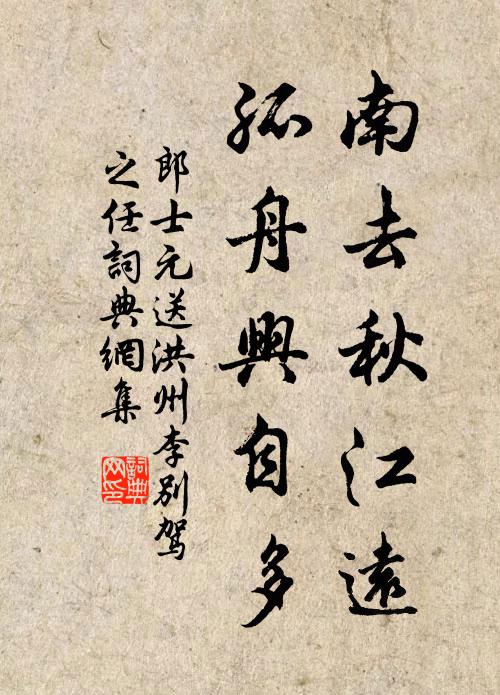 南去秋江遠
孤舟興自多
郎士元送洪州李别駕
之任詞典網集
詞典
网印